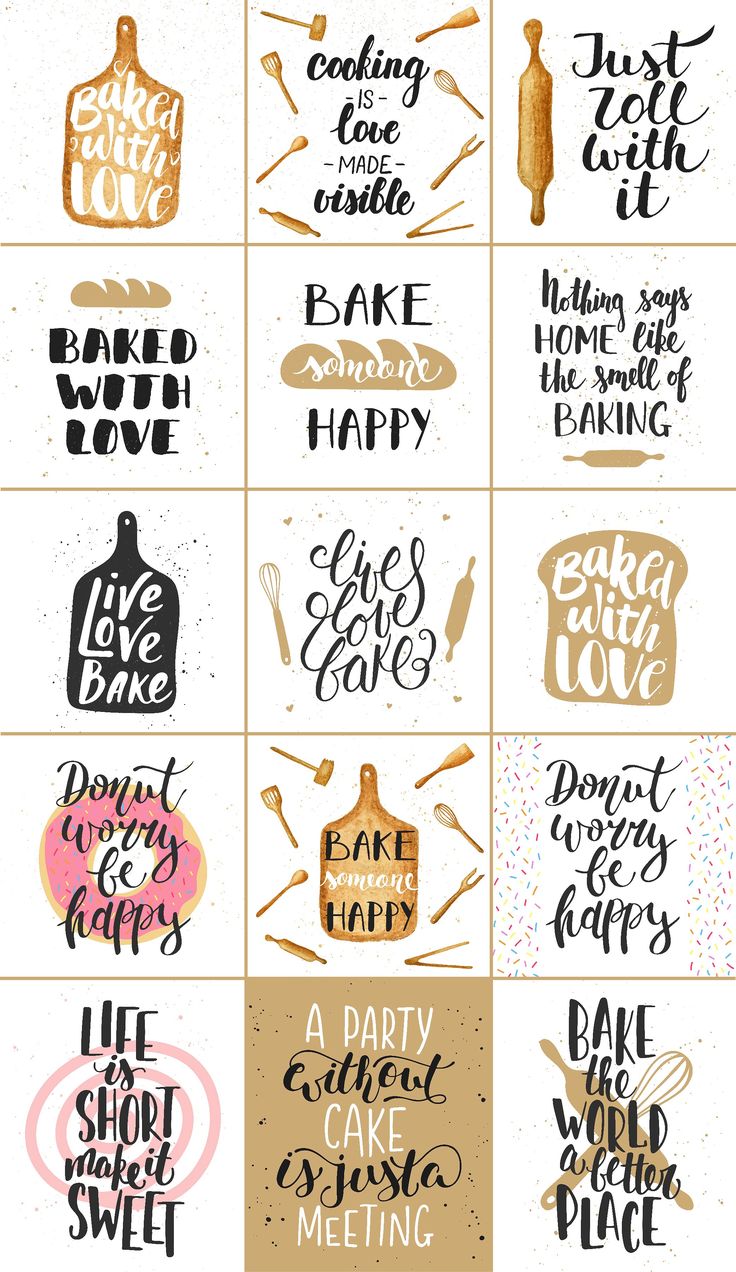 Baked
with
LOVE
cooking
- IS -
love
- MADE -
visible
Just
roll
with
it
BAKED
WITH
LOVE
BAKE
someone
HAPPY
Nothing says
HOME like
the smell of
BAKING
LIVE
LOVE
BAKE
live
love
bake
Baked
with
LOVE
Donut
worry
be
happy
BAKE
someone
HAPPY
Donut
worry
be
happy
LIFE
is
SHORT
make it
SWEET
A PARTY
without
CAKE
is just a
MEETING
BAKE
the
WORLD
a better
PLACE